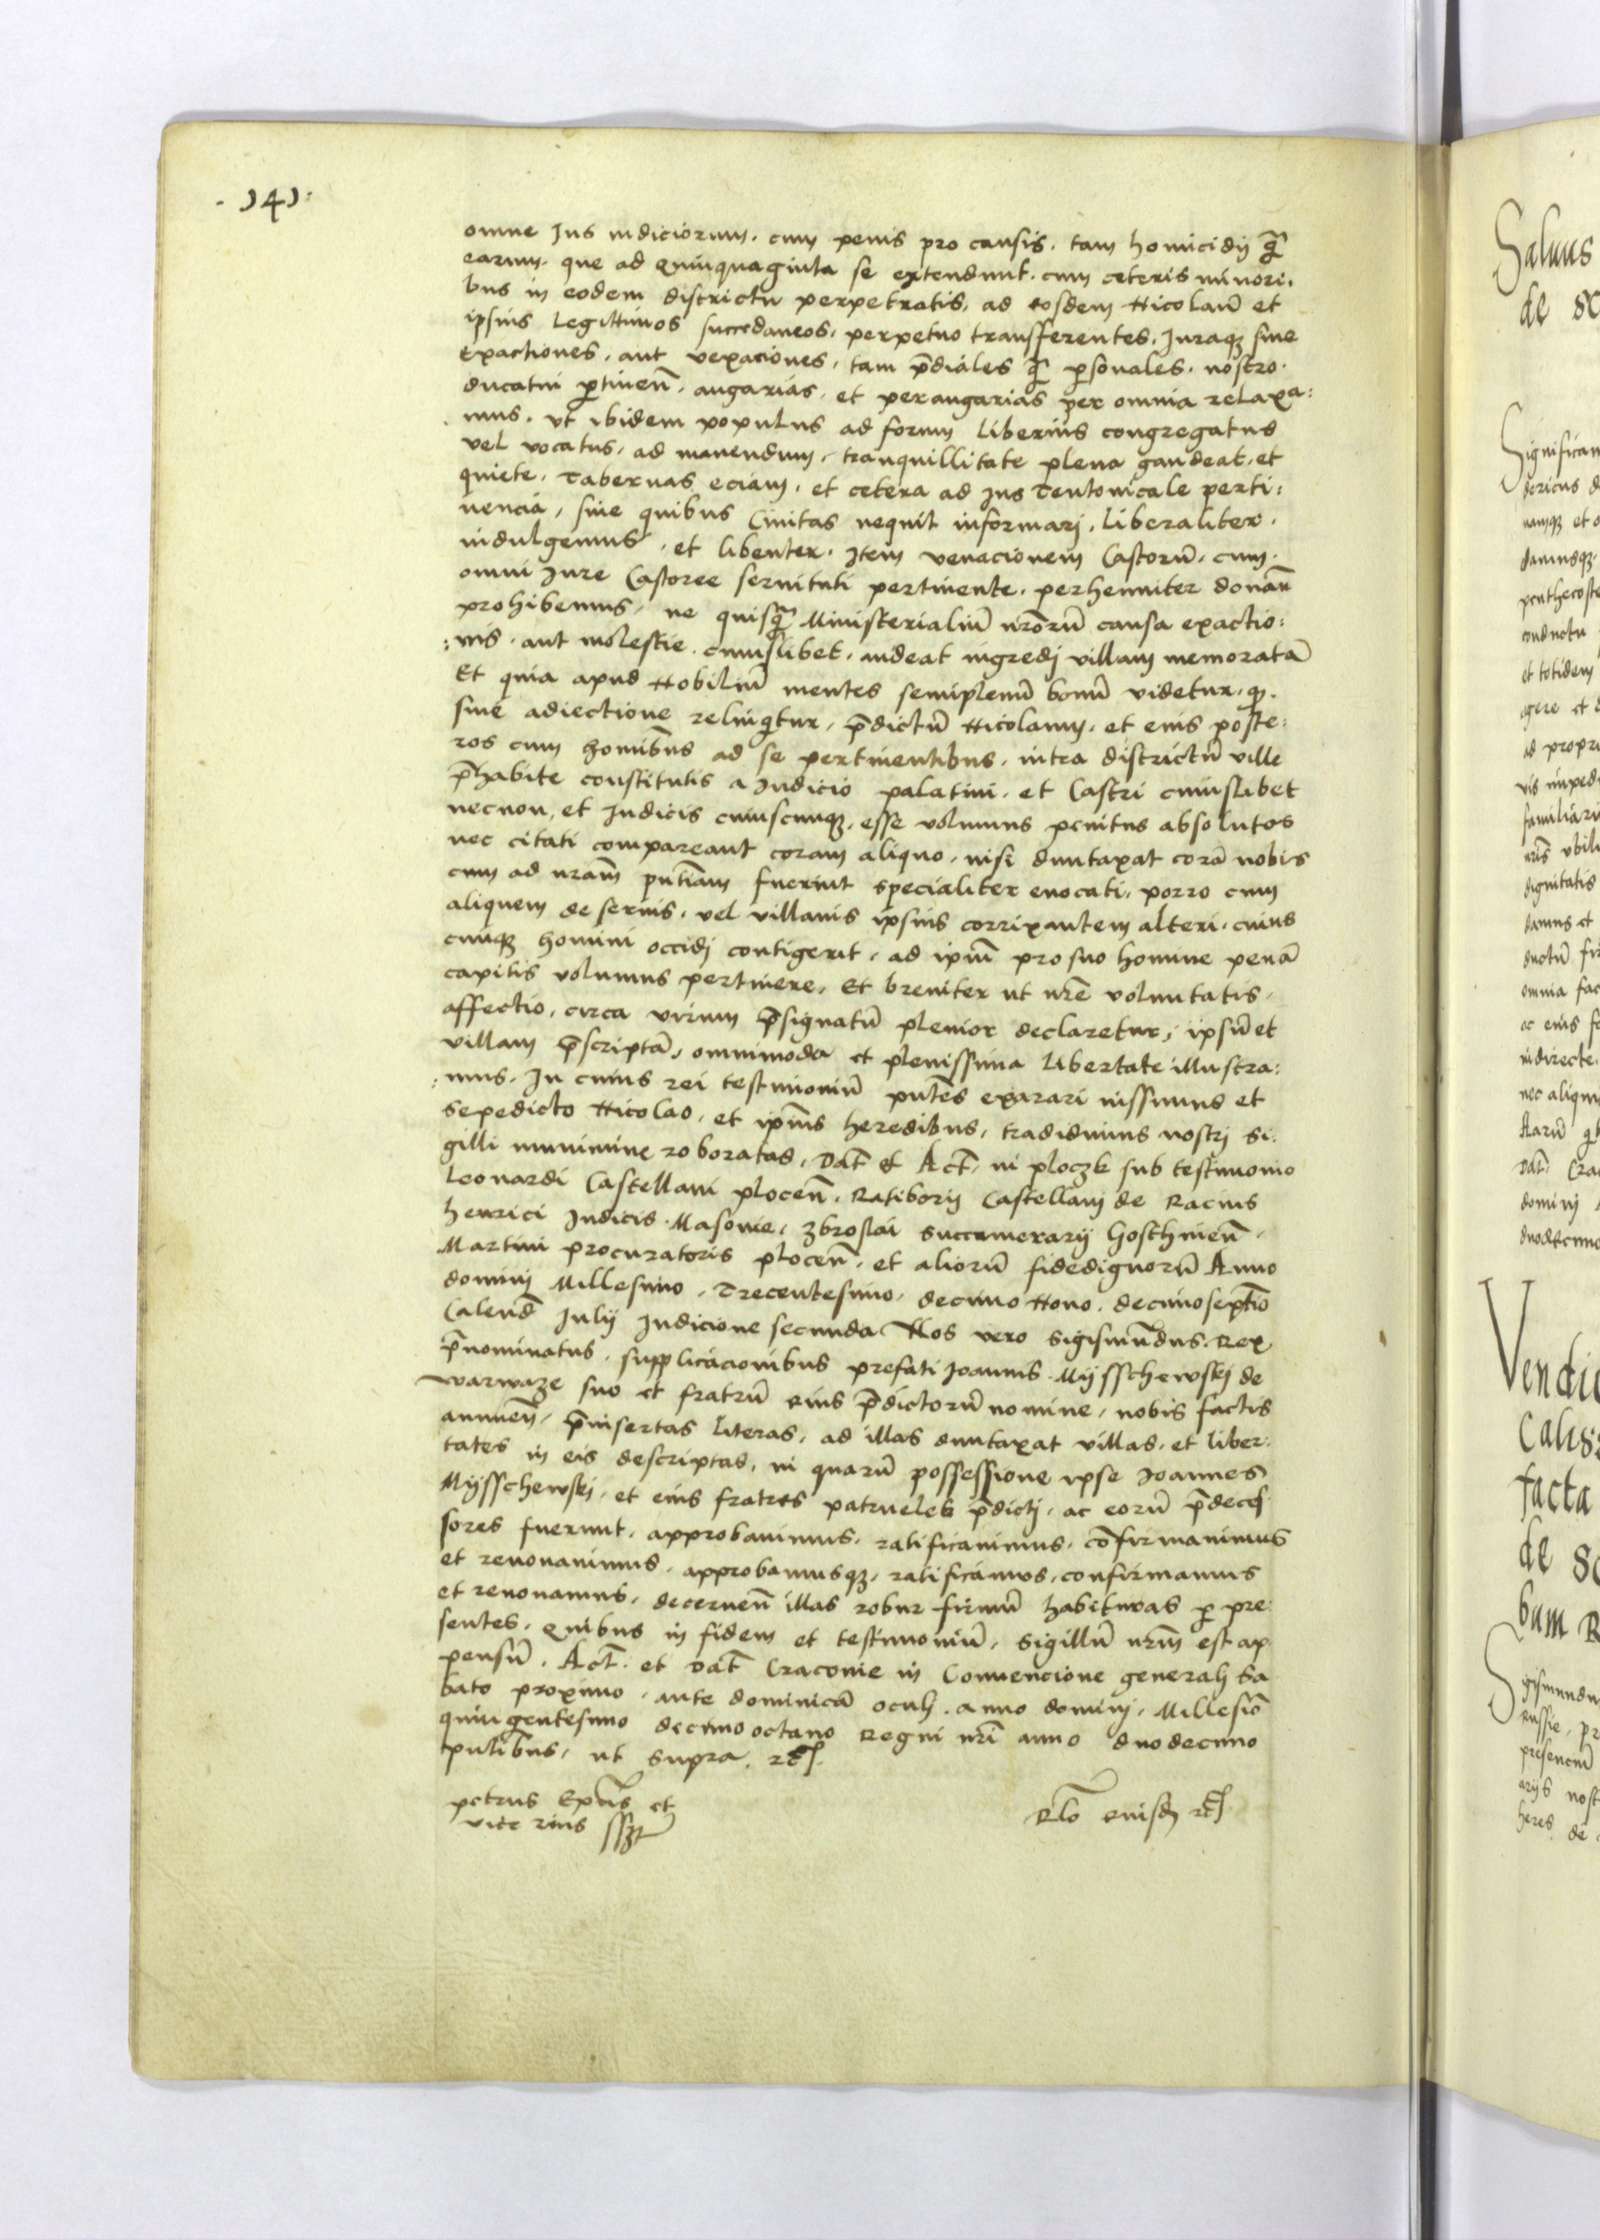 · 141 ·
omne Jus iudiciorum, cum penis pro causis, tam homicidij q̃
earum, que ad Quinquaginta se extendunt, cum ceteris minori-
bus in eodem districtu perpetratis, ad eosdem Nicolaũ et
ipsius legittimos succedaneos, perpetuo transfferentes, Juraqʒ sine
Exactiones, aut vexaciones, tam p̃diales q̃ personales, nostro
ducatui ptineñ, angarias, et perangarias per omnia relaxa:
mus, vt ibidem populus ad forum liberius congregatus
vel vocatus, ad manendum, tranquillitate plena gaudeat, et
quiete, Tabernas eciam, et cetera ad Jus Teutonicale perti:
nencia, sine quibus Ciuitas nequit informarj, liberaliter
indulgemus, et libenter. Item venacionem Castorũ, cum
omni Jure Castoree seruituti pertinente, perhenniter donam̃
prohibemus, ne quisq̃ Ministerialiũ nr̃orũ causa exactio:
:nis, aut molestie cuiuslibet, audeat ingredj villam memoratã
Et quia apud Nobiliũ mentes semiplenũ bonũ videtur, qʒ
sine adiectione relinqtur, p̃dictũ Nicolaum, et eius poste:
ros cum hominibus ad se pertinentibus, intra districtũ ville
p̃habite constitutis a Judicio palatini, et Castri cuiuslibet
necnon, et Judicis cuiuscunqʒ, esse volumus penitus absolutos
nec citati compareant coram aliquo, nisi duntaxat corã nobis
cum ad nr̃am pñtiam fuerint specialiter euocati, porro cum
aliquem de seruis, vel villanis ipsius corrixantem alteri, cuius
cunqʒ homini occidj contigerit, ad ipm̃ pro suo homine penã
capitis volumus pertinere, Et breuiter ut nr̃e voluntatis
affectio, circa virum p̃signatũ plenior declaretur, ipsũ et
villam p̃scriptã, omnimoda et plenissima libertate illustra:
:mus. In cuius rei testimoniũ pñtes exarari iussimus et
sepedicto Nicolao, et ipius heredibus, tradidimus nostrj Si:
gilli munimine roboratas, Dat̃ et Act̃ in ploczk sub testimonio
Leonardi Castellani ploceñ, Ratiborij Castellani de Racius
henrici Judicis Masouie, Zbroslai Succamerarij Gosthinieñ,
Martini procuratoris ploceñ, et aliorũ fidedignorũ Anno
dominj Millesimo, Trecentesimo, decimo Nono, decimosept̃io
Calend̃ Julij Indicione secunda Nos vero Sigismũdus Rex
p̃nominatus, supplicacionibus prefati Joannis Mijsschewskj de
warwaze suo et fratrũ eius p̃dictorũ nomine, nobis factis
annueñ, p̃insertas literas, ad illas duntaxat villas, et liber:
tates in eis descriptas, in quarũ possessione ipse Joannes
Mijsschewskj, et eius fratres patrueles p̃dictj, ac eorũ p̃deces
sores fuerunt, approbauimus, ratificauimus, cõfirmauimus
et renouauimus, approbamusqʒ, ratificamus, confirmamus
et renouamus, decerneñ illas robur firmũ habituras p pre:
sentes, Quibus in fidem et testimoniũ, Sigillũ nrm̃ est ap
pensũ, Act̃ et Dat̃ Cracouie in Conuencione generalj Sa
bato proximo, ante dominicã oculj, anno dominj, Millesiõ
quingentesimo decimo octauo Regni nr̃i anno duodecimo
pñtibus, ut supra. rc̃
petrus Ep̃us et
vice rius sszt
Rlõ euisdʒ rc̃
Saluus
de
Significam
namqʒ et
damusqʒ
penthecoste
conductu
et totidem
agere et
ad propri
vis impedi
familiari
dignitatis
damus et
ductũ
omnia fac
ac eius
indirecte
nec aliqu
Dat̃ Cra
dominj
duodecimo
Vendic
Calis
facta
de
bum
Sigismundu
Russie, pr
presencium
arijs nost
heres de